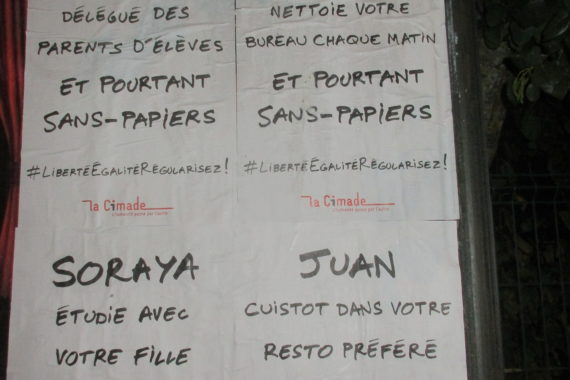 DÉLÉGUÉ DES
PARENTS D'ÉLÈVES
ET POURTANT
SANS-PAPIERS
#LIBERTÉÉGALITÉRÉGULARISEZ!
la Cimade
L'humanité passe par l'autre
NETTOIE VOTRE
BUREAU CHAQUE MATIN
ET POURTANT
SANS-PAPIERS
#LIBERTÉÉGALITÉRÉGULARISEZ!
la Cimade
L'humanité passe par l'autre
SORAYA
ÉTUDIE AVEC
VOTRE FILLE
JUAN
CUISTOT DANS VOTRE
RESTO PRÉFÉRÉ